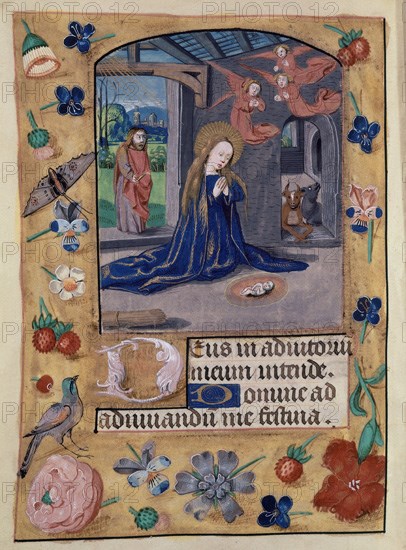 Deus in adiutoriu
meum intende.
Domine ad
adiuuandu me festina.